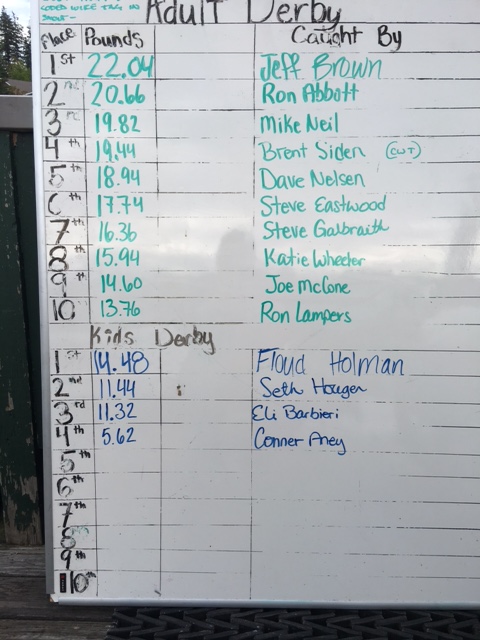 CODED WIRE TAG IN
SNOUT-
Adult Derby
Place Pounds Caught By
1st 22.04 Jeff Brown
2nd 20.66 Ron Abbott
3rd 19.82 Mike Neil
4th 19.44 Brent Siden (CWT)
5th 18.94 Dave Nelsen
6th 17.74 Steve Eastwood
7th 16.36 Steve Galbraith
8th 15.94 Katie Wheeler
9th 14.60 Joe McCone
10 13.76 Ron Lampers
Kids Derby
1st 14.48 Floyd Holman
2nd 11.44 Seth Hougen
3rd 11.32 Eli Barbieri
4th 5.62 Conner Aney
5th
6th
7th
8th
9th
10th